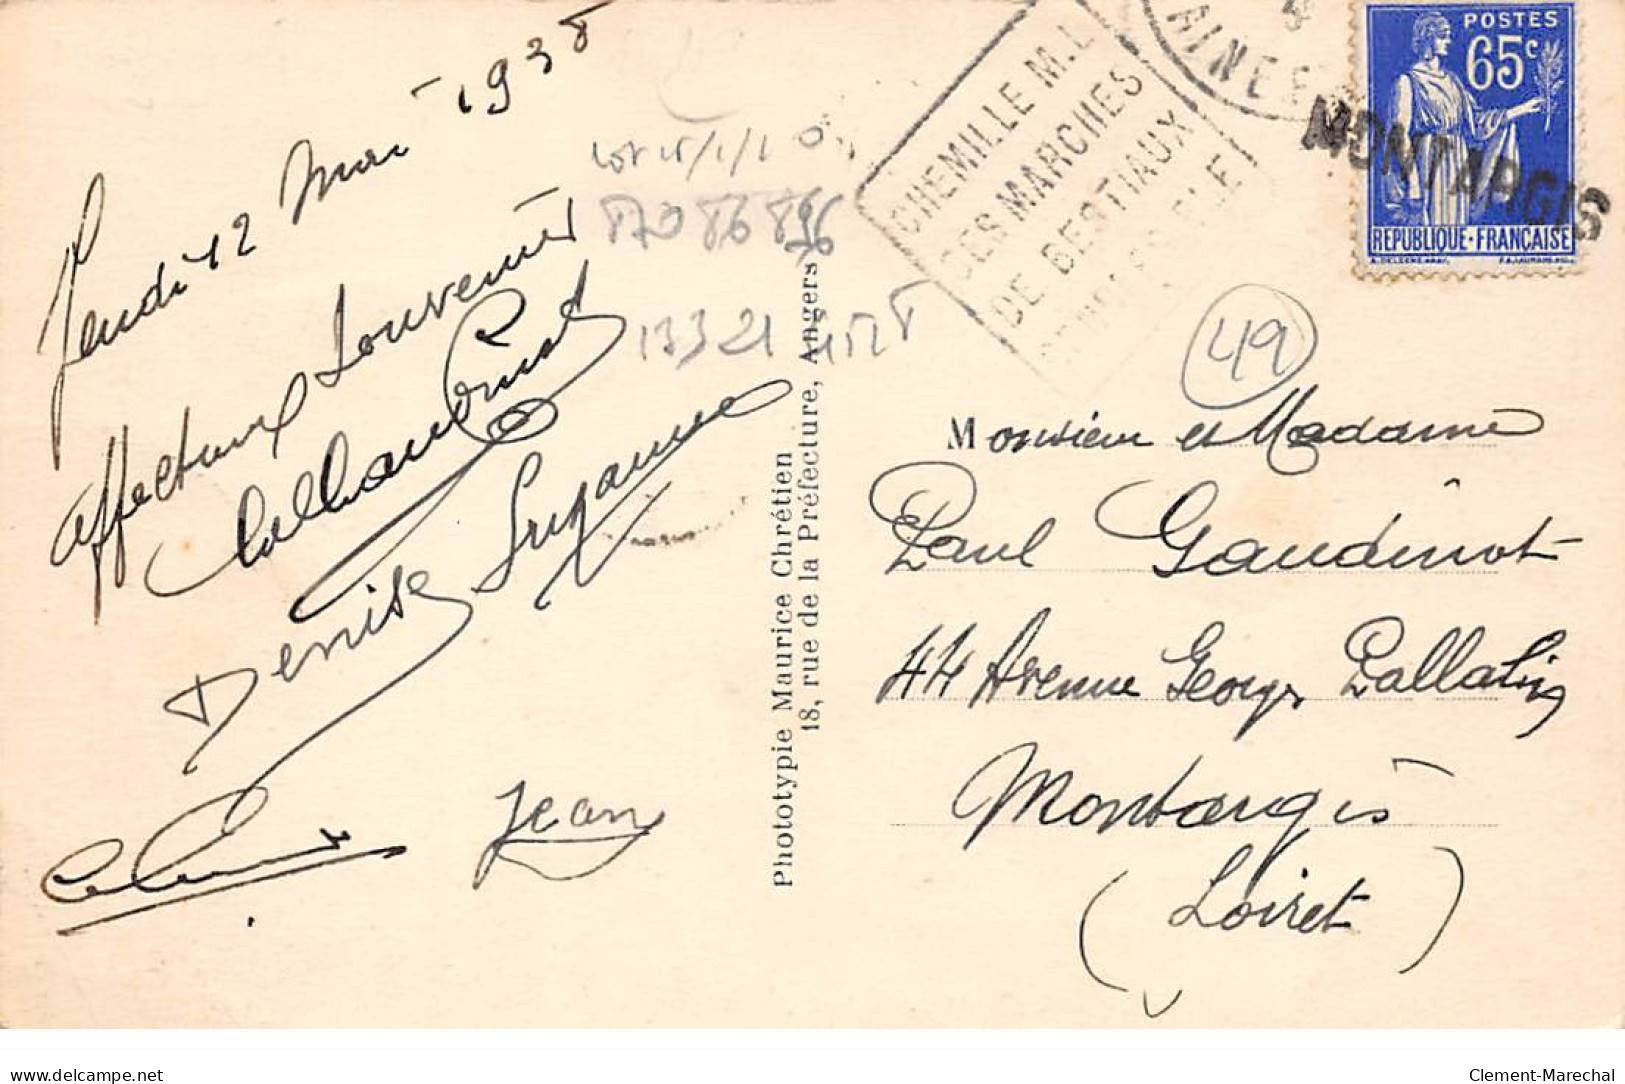 Jeudi 12 Mai 1938
affectueux souvenir
Denise Suzanne
Jean
lot 15/1/1
87086896
13321
Phototypie Maurice Chrétien
18, rue de la Préfecture, Angers
CHEMILLE M.L.
SES MARCHES
DE BESTIAUX
MAINE ET
MONTARGIS
POSTES
65c
REPUBLIQUE·FRANÇAISE
49
Monsieur et Madame
Paul Gaudinot
44 Avenue Georges
Montargis
(Loiret)
www.delcampe.net
Clement-Marechal